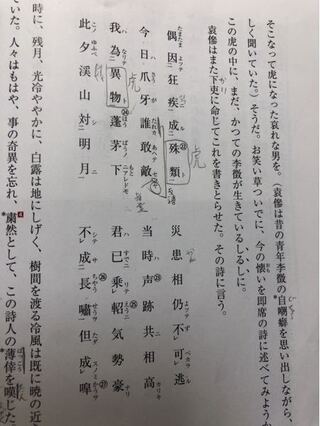 そこなって虎になった哀れな男を。（袁傪は昔の青年李徴の自嘲癖を思い出しながら、
しく聞いていた。）そうだ。お笑い草ついでに、今の懐いを即席の詩に述べてみようか
この虎の中に、まだ、かつての李徴が生きているしるしに。
袁傪はまた下吏に命じてこれを書きとらせた。その詩に言う。
偶因狂疾成殊類 災患相仍不可逃
虎
今日爪牙誰敢敵 当時声跡共相高
我為異物蓬茅下 君已乗軺気勢豪
虎
此夕渓山対明月 不成長嘯但成嘷
時に、残月、光冷ややかに、白露は地にしげく、樹間を渡る冷風は既に暁の近
ていた。人々はもはや、事の奇異を忘れ、粛然として、この詩人の薄倖を嘆じた